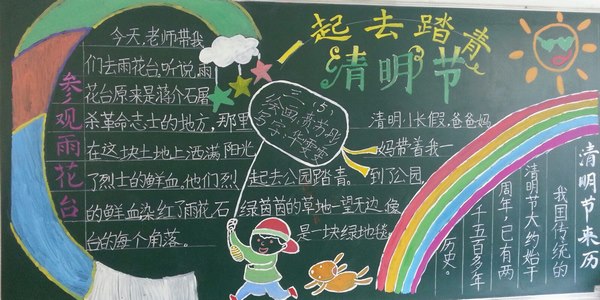 参观雨花台
今天,老师带我
们去雨花台,听说,雨
花台原来是蒋介石屠
杀革命志士的地方,那里
在这块土地上洒满阳光
了烈士的鲜血,他们烈
的鲜血染红了雨花石
台的每个角落。
起去踏青
清明节
三、(5)
清明小长假,爸爸妈
妈带着我一
起去公园踏青。到了公园
绿茵茵的草地一望无边,像
是一块绿地毯
清明节来历
我国传统的
清明节大约始于
周年,已有两
千五百多年
历史。